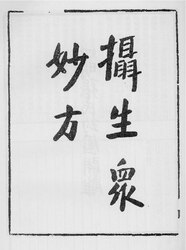 攝生衆
妙方